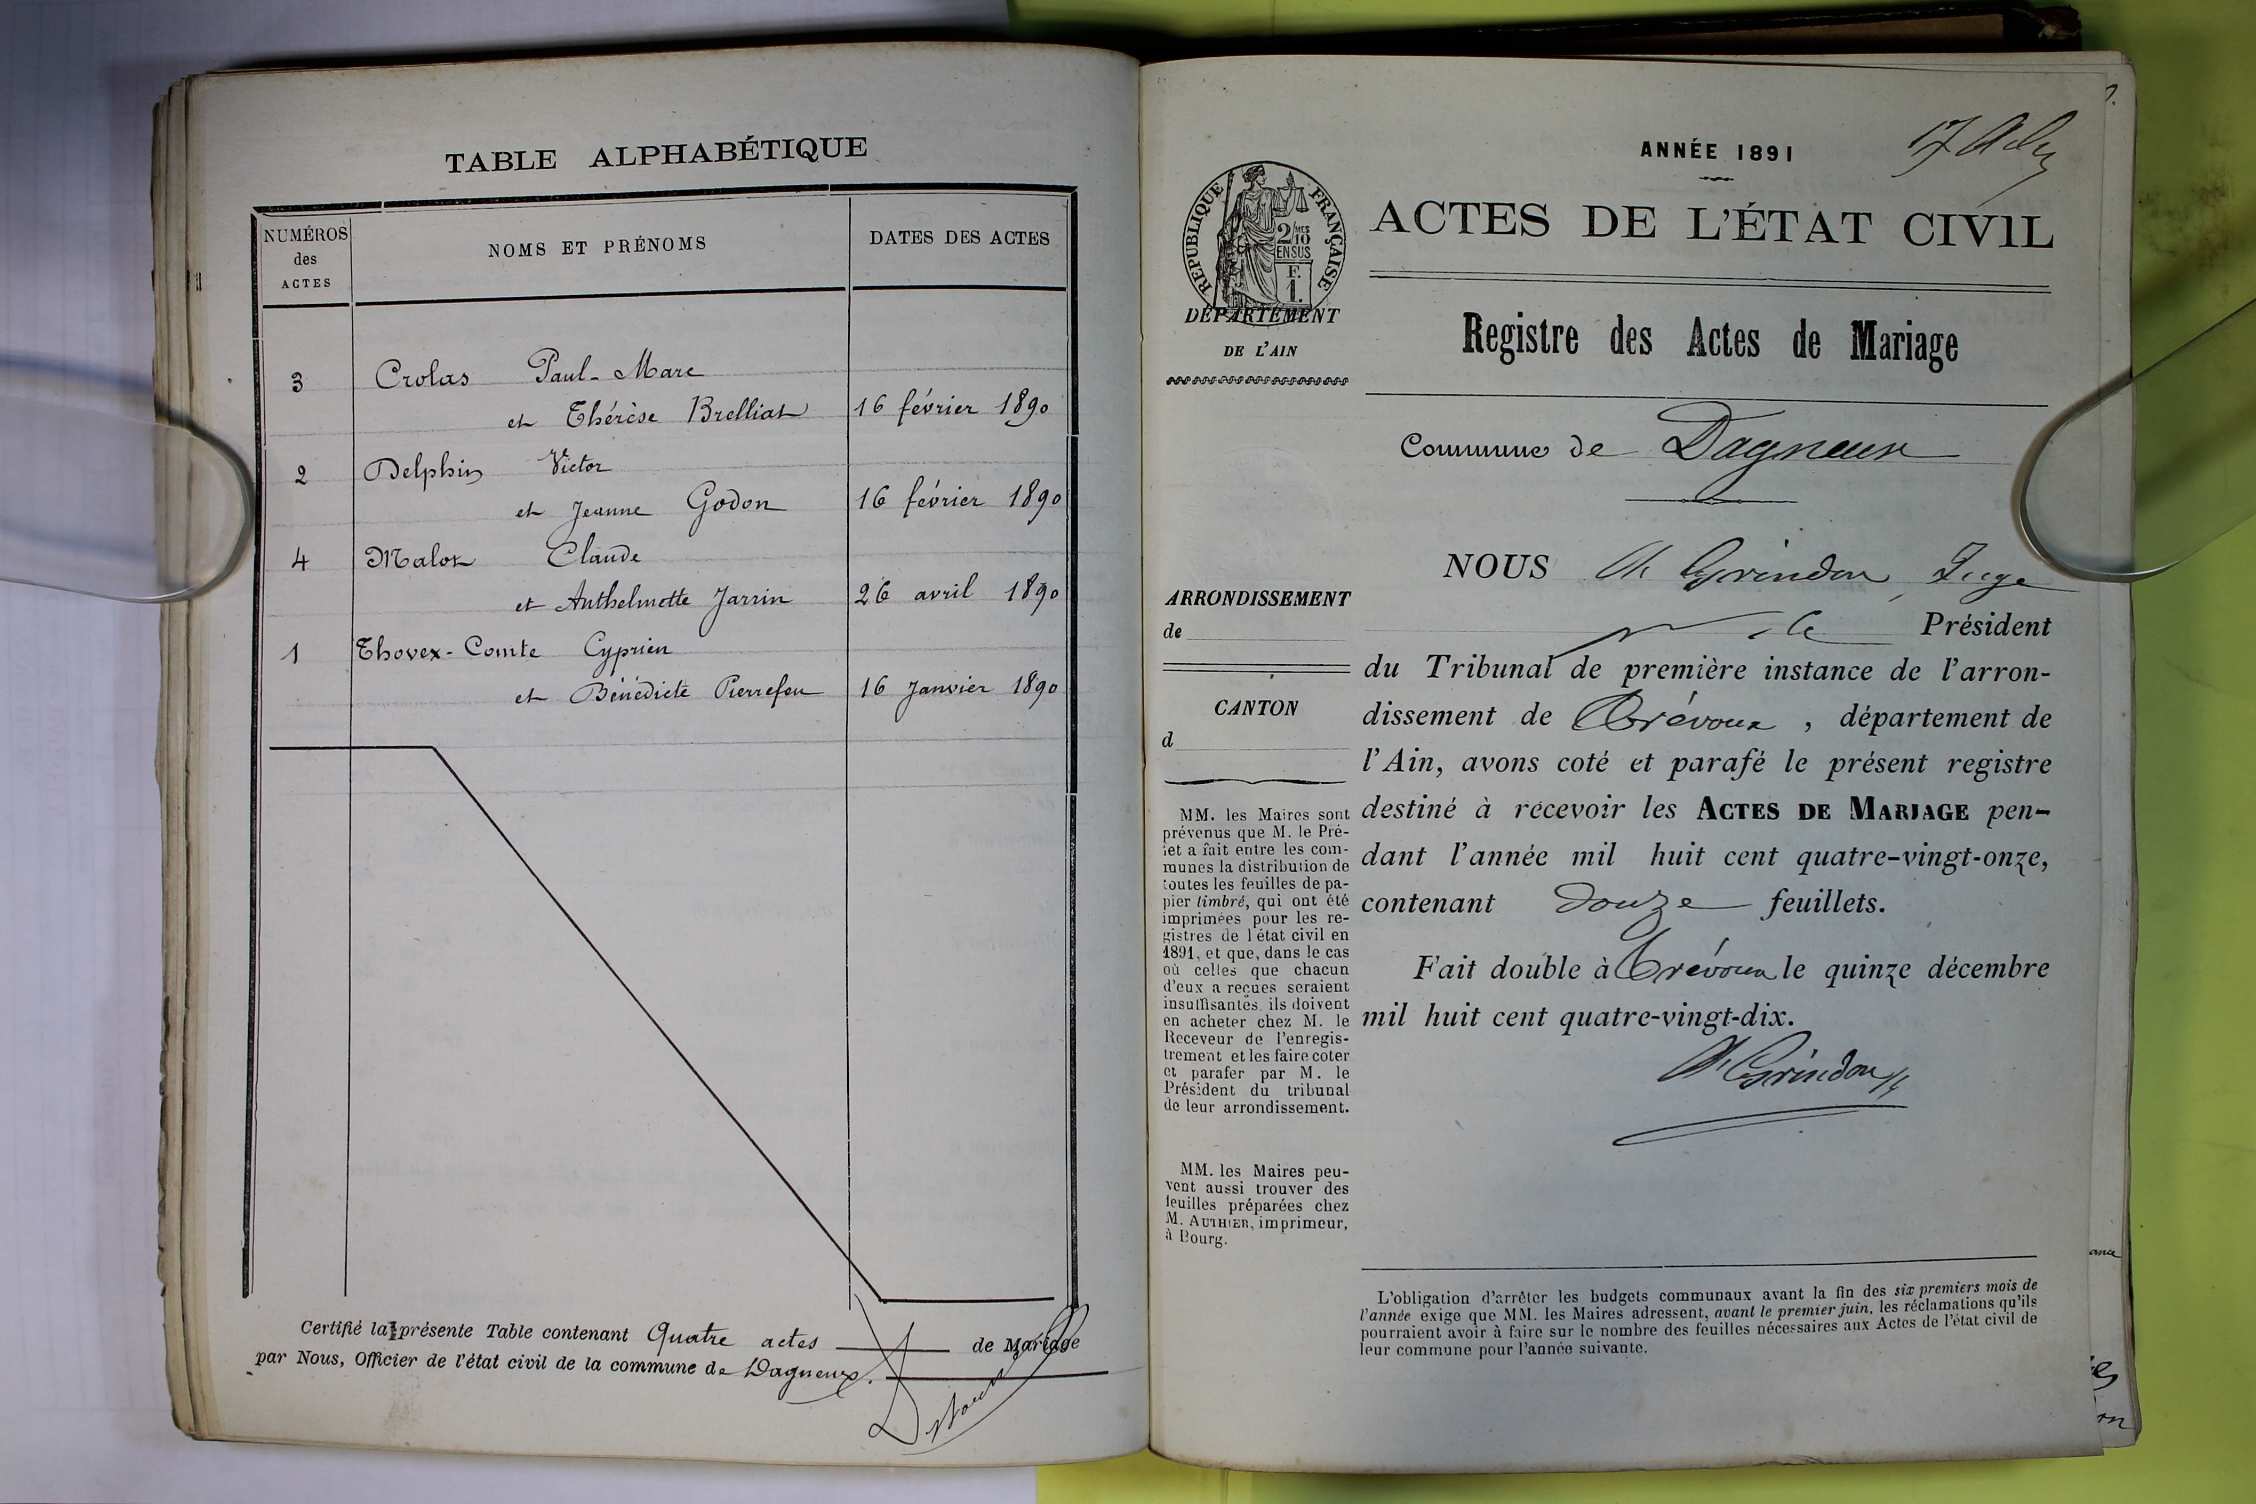 TABLE ALPHABÉTIQUE
NUMÉROS
des
ACTES
NOMS ET PRÉNOMS
DATES DES ACTES
3 Crolas Paul-Marc
et Thérèse Brelliat 16 février 1890
2 Delphin Victor
et Jeanne Godon 16 février 1890
4 Malot Claude
et Anthelmette Jarrin 26 avril 1890
1 Thovex-Comte Cyprien
et Bénédicte Pierrefeu 16 Janvier 1890
Certifié la présente Table contenant Quatre actes de Mariage
par Nous, Officier de l'état civil de la commune de Dagneux.
ANNÉE 1891
RÉPUBLIQUE FRANÇAISE
2/10 MES
EN SUS
F.
1.
ACTES DE L'ÉTAT CIVIL
DÉPARTEMENT
DE L'AIN
Registre des Actes de Mariage
Commune de Dagneux
ARRONDISSEMENT
de
CANTON
d
MM. les Maires sont
prévenus que M. le Pré-
fet a fait entre les com-
munes la distribution de
toutes les feuilles de pa-
pier timbré, qui ont été
imprimées pour les re-
gistres de l'état civil en
1891, et que, dans le cas
où celles que chacun
d'eux a reçues seraient
insuffisantes, ils doivent
en acheter chez M. le
Receveur de l'enregis-
trement et les faire coter
et parafer par M. le
Président du tribunal
de leur arrondissement.
MM. les Maires peu-
vent aussi trouver des
feuilles préparées chez
M. AUTHIER, imprimeur,
à Bourg.
NOUS Grindon, Juge
Président
du Tribunal de première instance de l'arron-
dissement de Trévoux, département de
l'Ain, avons coté et parafé le présent registre
destiné à recevoir les ACTES DE MARIAGE pen-
dant l'année mil huit cent quatre-vingt-onze,
contenant douze feuillets.
Fait double à Trévoux le quinze décembre
mil huit cent quatre-vingt-dix.
Grindon
L'obligation d'arrêter les budgets communaux avant la fin des six premiers mois de
l'année exige que MM. les Maires adressent, avant le premier juin, les réclamations qu'ils
pourraient avoir à faire sur le nombre des feuilles nécessaires aux Actes de l'état civil de
leur commune pour l'année suivante.